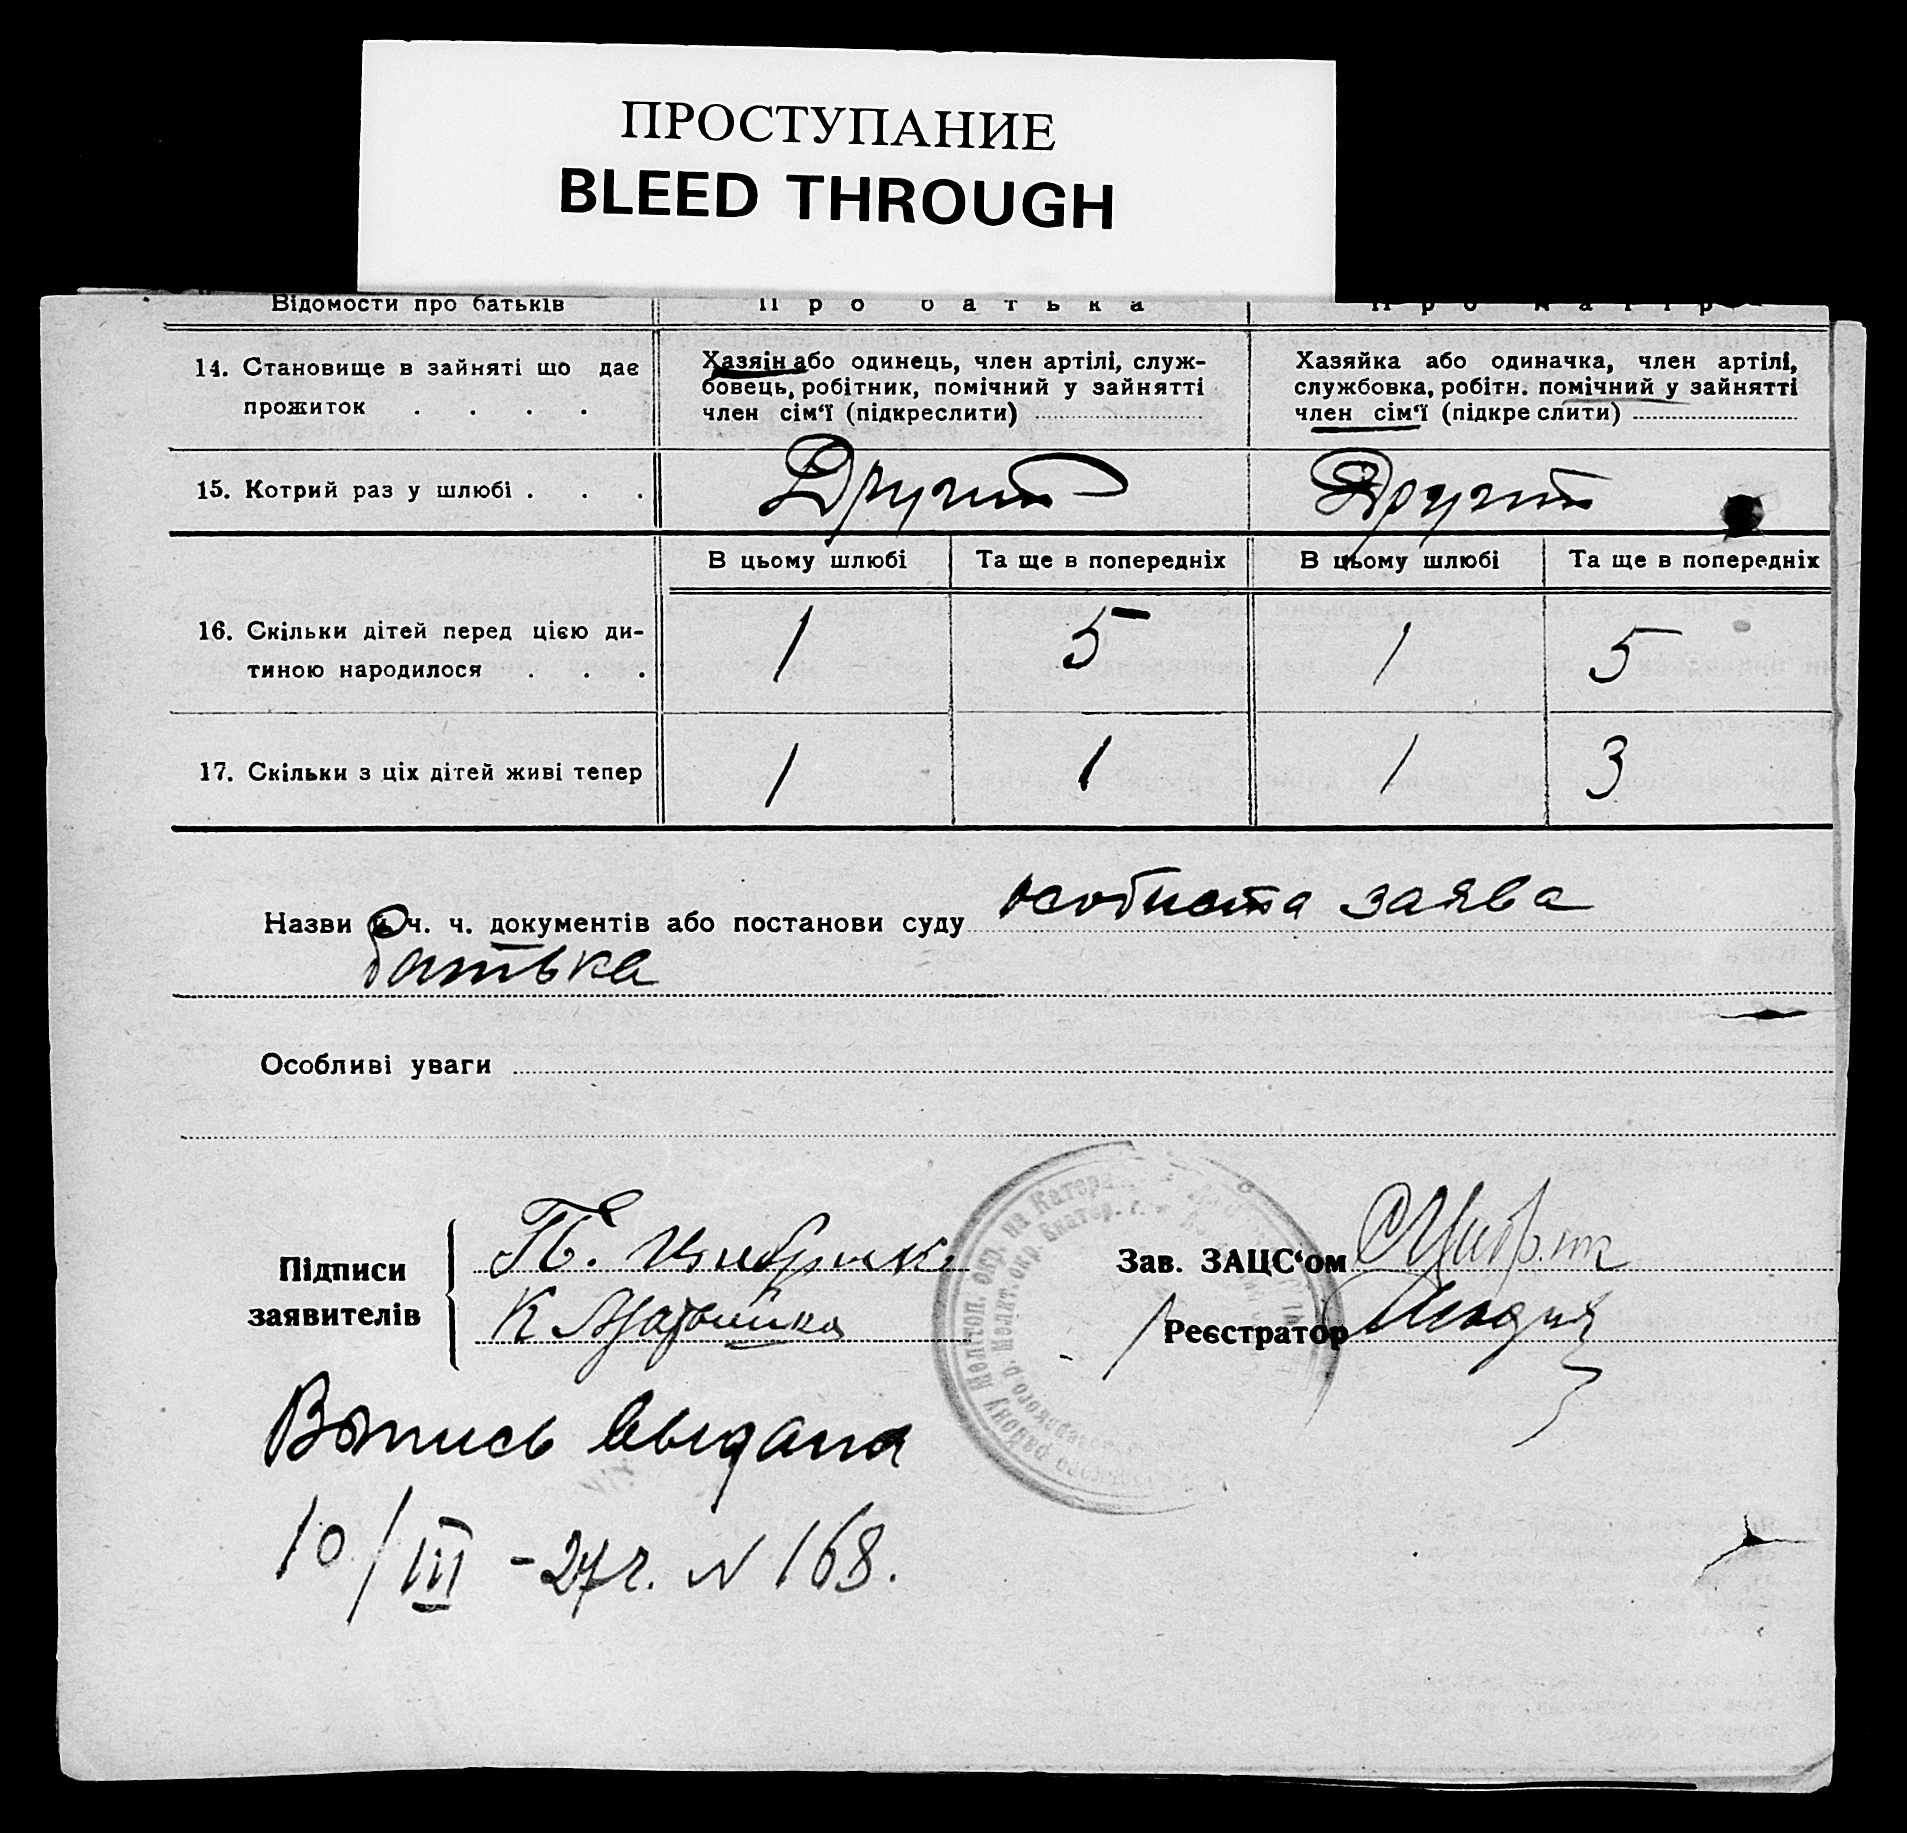 ПРОСТУПАНИЕ
BLEED THROUGH
Відомости про батьків
Про батька
Про матір
14. Становище в зайняті що дає
прожиток . . . .
Хазяін або одинець, член артілі, служ-
бовець, робітник, помічний у зайнятті
член сім‘ї (підкреслити)
Хазяйка або одиначка, член артілі,
службовка, робітн. помічний у зайнятті
член сім‘ї (підкре слити)
15. Котрий раз у шлюбі . . .
Другий
Другий
В цьому шлюбі
Та ще в попередніх
В цьому шлюбі
Та ще в попередніх
16. Скільки дітей перед цією ди-
тиною народилося . . .
1 5 1 5
17. Скільки з ціх дітей живі тепер
1 1 1 3
Назви й ч. ч. документів або постанови суду особиста заява
батька
Особливі уваги
Підписи
заявителів
Зав. ЗАЦС‘ом
Реєстратор
Выпись выдана
10/III -27 г. N 168.